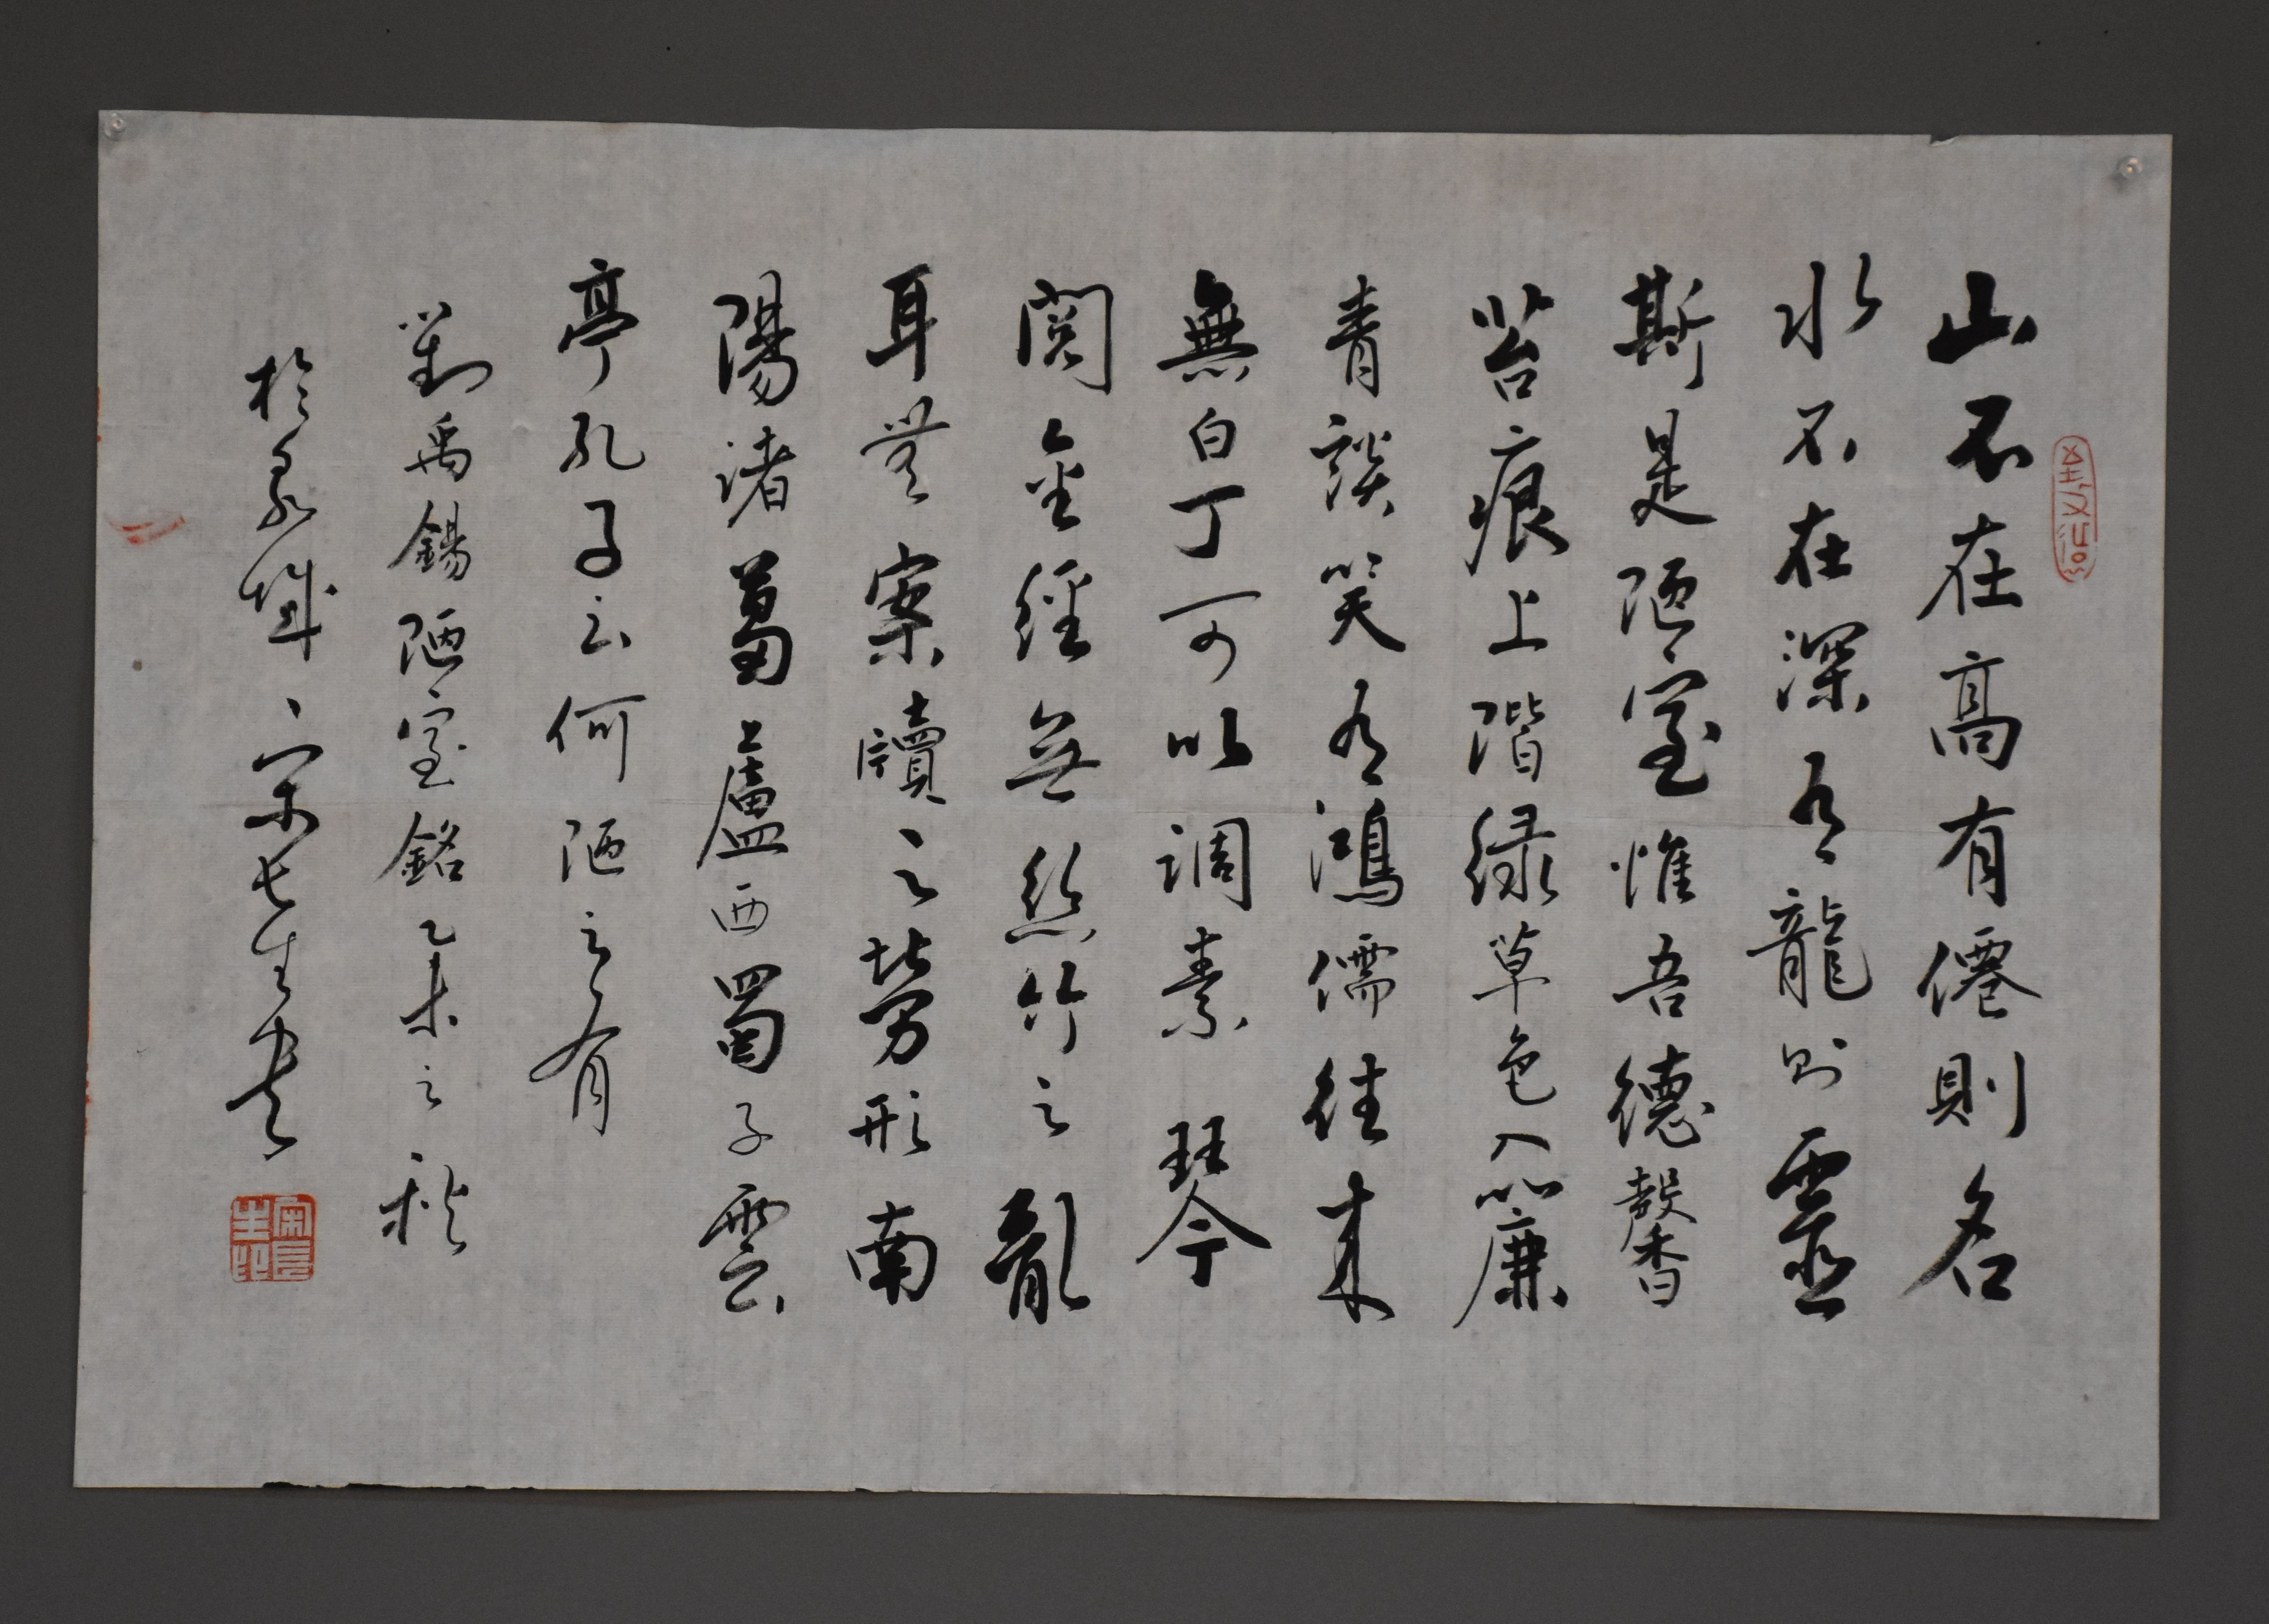 山不在高有僊則名
水不在深有龍則靈
斯是陋室惟吾德馨
苔痕上階緑草色入簾
青談笑有鴻儒往來
無白丁可以調素琴
閲金經無絲竹之亂
耳無案牘之勞形南
陽諸葛廬西蜀子雲
亭孔子云何陋之有
劉禹錫陋室銘乙未之秋
於 宋長生書
宋長生印